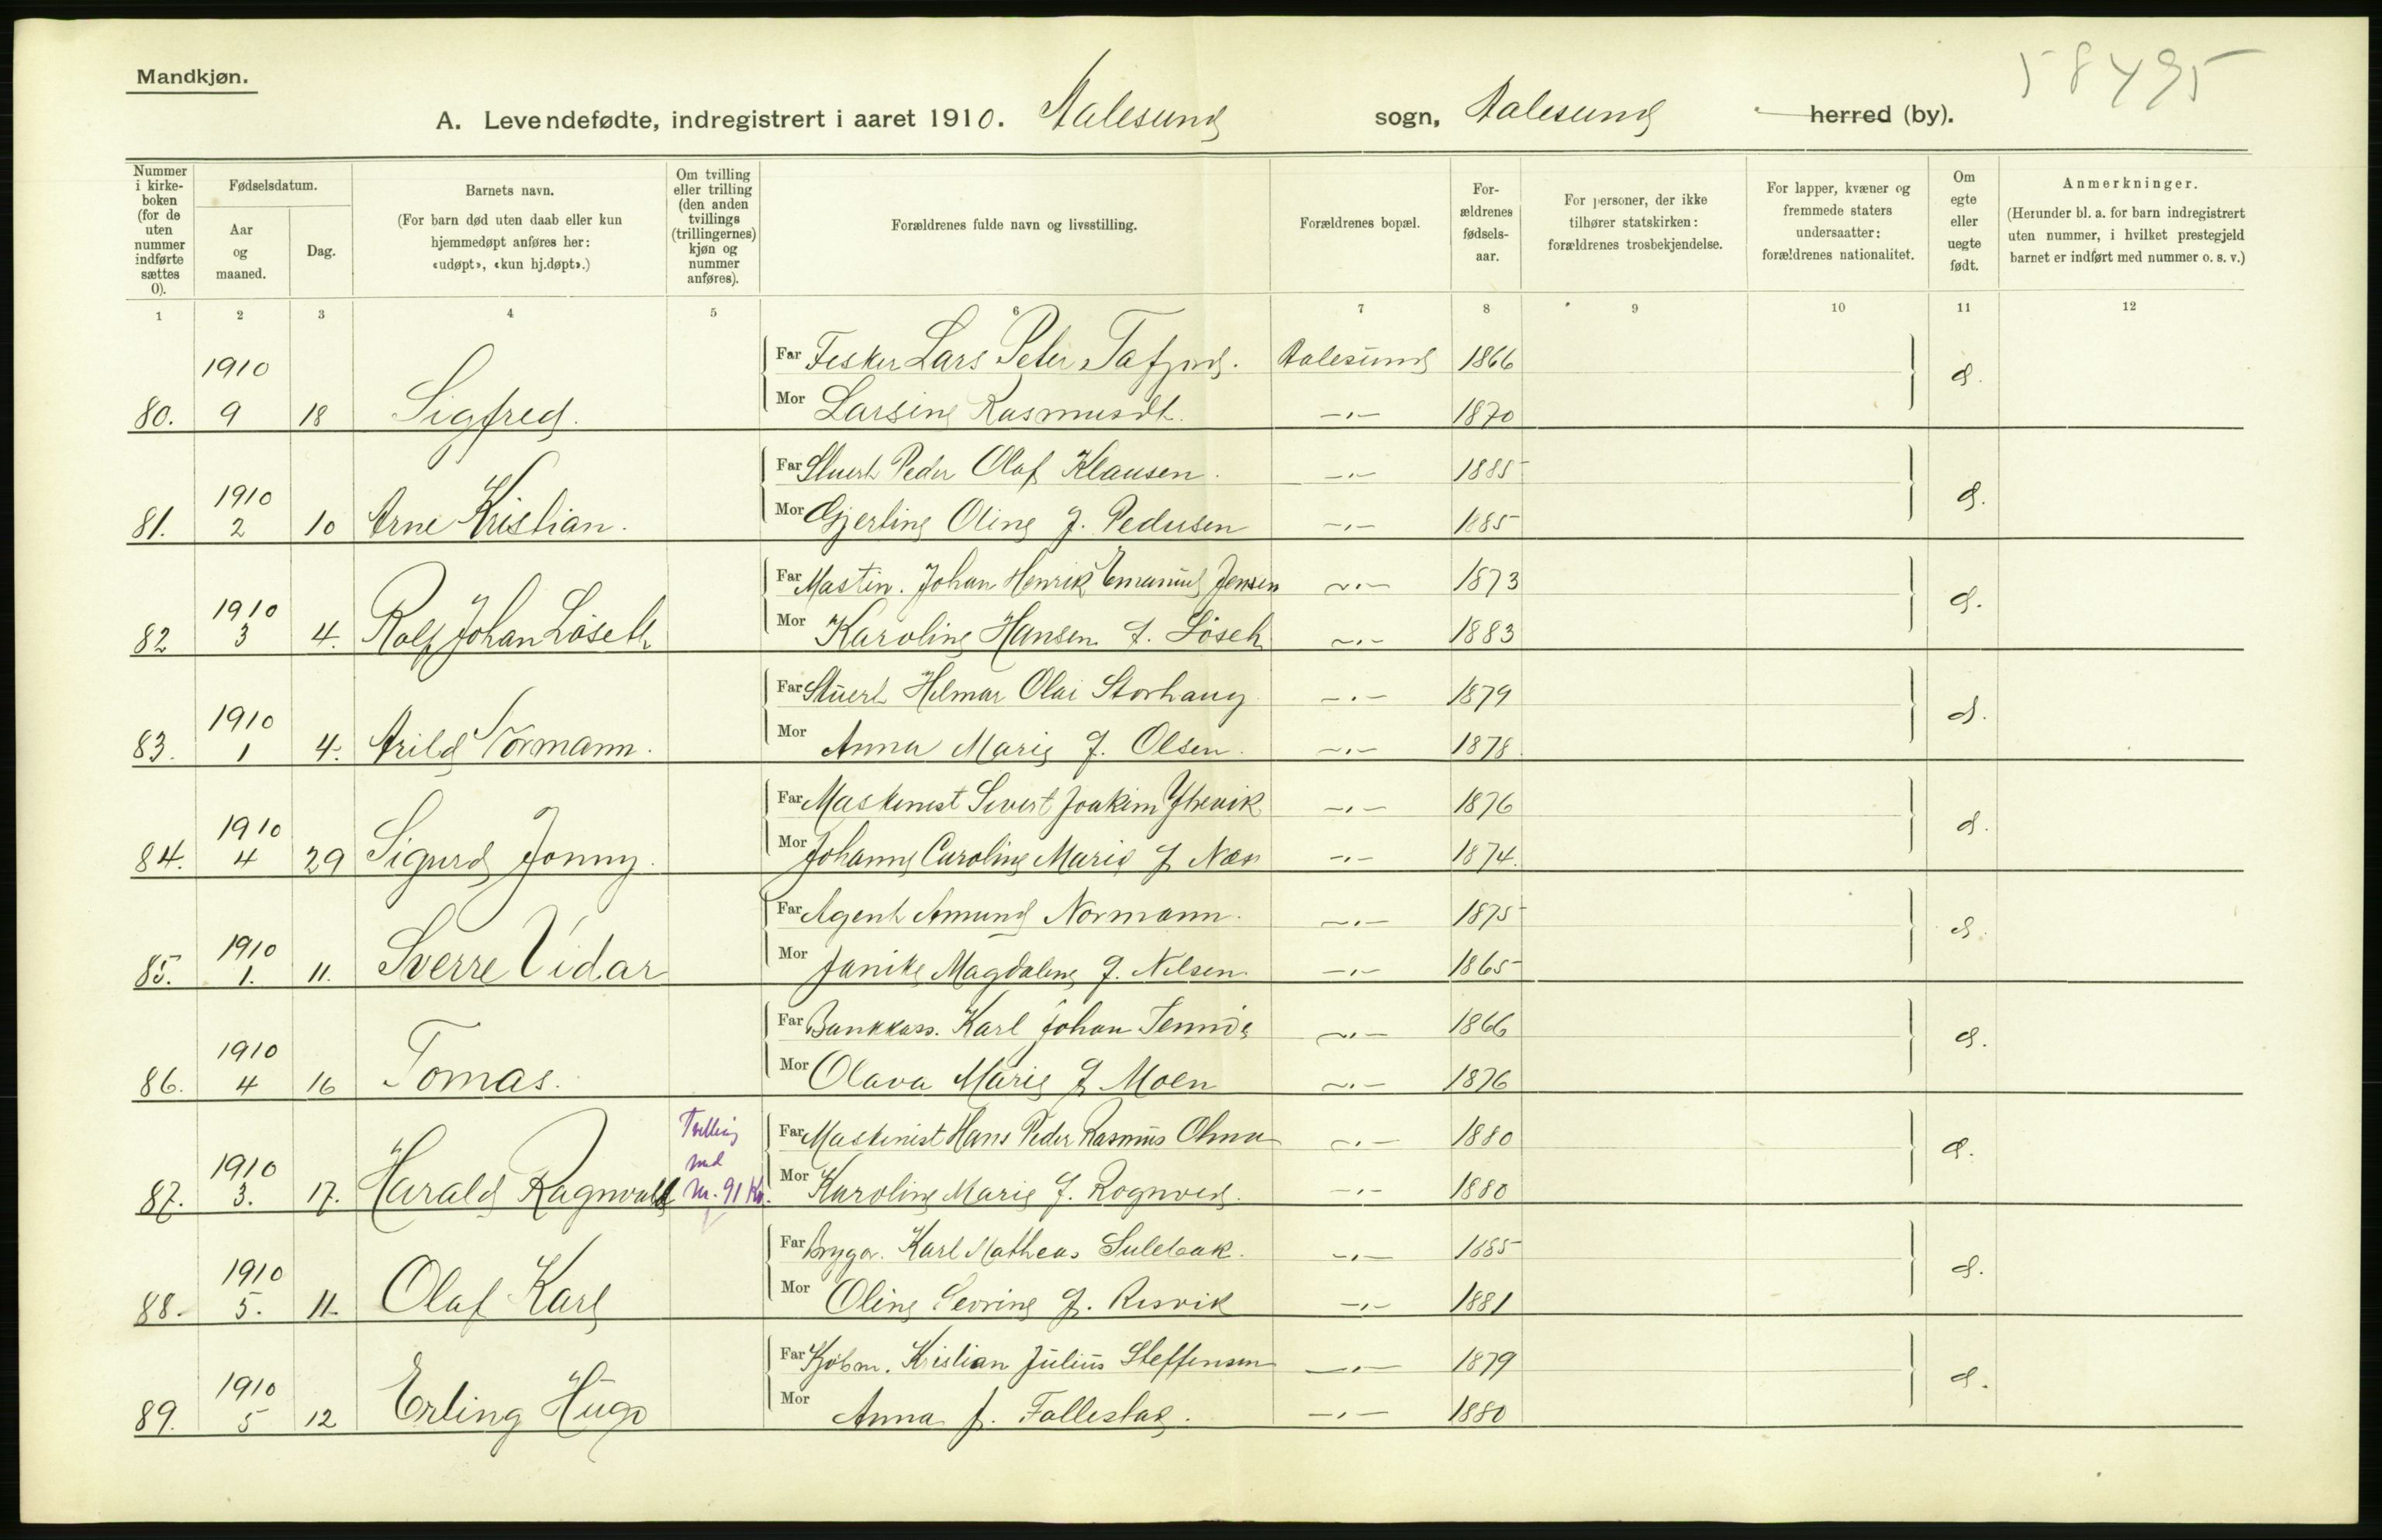 58495
Mandkjøn.
A. Levendefødte, indregistrert i aaret 1910. Aalesund sogn, Aalesund herred (by).
Nummer i kirkeboken (for de uten nummer indførte sættes 0).
Fødselsdatum.
Aar og maaned.
Dag.
Barnets navn.
(For barn død uten daab eller kun hjemmedøpt anføres her: «udøpt», «kun hj.døpt».)
Om tvilling eller trilling (den anden tvillings (trillingernes) kjøn og nummer anføres).
Forældrenes fulde navn og livsstilling.
Forældrenes bopæl.
Forældrenes fødselsaar.
For personer, der ikke tilhører statskirken: forældrenes trosbekjendelse.
For lapper, kvæner og fremmede staters undersaatter: forældrenes nationalitet.
Om egte eller uegte født.
Anmerkninger.
(Herunder bl. a. for barn indregistrert uten nummer, i hvilket prestegjeld barnet er indført med nummer o. s. v.)
1 2 3 4 5 6 7 8 9 10 11 12
1910 Far Fisker Lars Peter Tafjord. Aalesund 1866
80. 9 18 Sigfred. Mor Larsine Rasmusdt. -"- 1870
1910 Far Stuert Peder Olaf Klausen. -"- 1885
81. 2 10 Arne Kristian. Mor Gjertine Oline f. Pedersen -"- 1885
1910 Far Mastin. Johan Henrik Emanuel Jensen -"- 1873
82 3 4. Rolf Johan Löseth Mor Karoline Hansen f. Löseth -"- 1883
1910 Far Stuert Hilmar Olai Storhaug -"- 1879
83. 1 4. Arild Normann. Mor Anna Marie f. Olsen. -"- 1878.
1910 Far Maskinist Sivert Joakim Ytrevik -"- 1876
84. 4 29 Sigurd Jonny. Mor Johanne Caroline Marie f. Næs -"- 1874.
1910 Far Agent Amund Normann. -"- 1875
85. 1. 11. Sverre Vidar Mor Janike Magdalene f. Nilsen -"- 1865
1910 Far Bankkass. Karl Johan -"- 1866
86. 4 16 Tomas. Mor Olava Marie f. Moen -"- 1876
1910 Tvilling med Far Maskinist Hans Peder Rasmus -"- 1880
87. 3. 17. Harald Ragnvald nr. 91 Kv. Mor Karoline Marie f. -"- 1880
1910 Far Karl Matheas Sulebak. -"- 1885
88. 5. 11. Olaf Karl Mor Oline Sevrine f. Risvik -"- 1881
1910 Far Kjøbm. Kristian Julius Steffensen -"- 1879
89. 5 12 Erling Hugo Mor Anna f. Follestad. -"- 1880